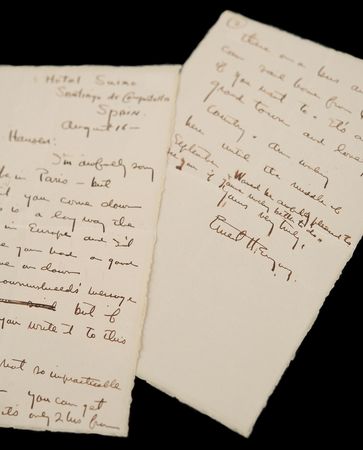 Hotel Suizo
Santiago de Compostella
Spain.
August 16—
Hansen:
I'm awfully sorry
in Paris — but
you come down
is a long way the
in Europe and I'd
you had a good
on down
message
but if
you write it to this
not so impracticable
— you can get
it's only 2 hrs from
there on a bus and
can sail home from
if you want to. It's a
grand town and lovely
country. Am working
here until the middle of
September. Would be awfully pleased to
see you if you've nothing better to do.
Yours very truly,
Ernest Hemingway